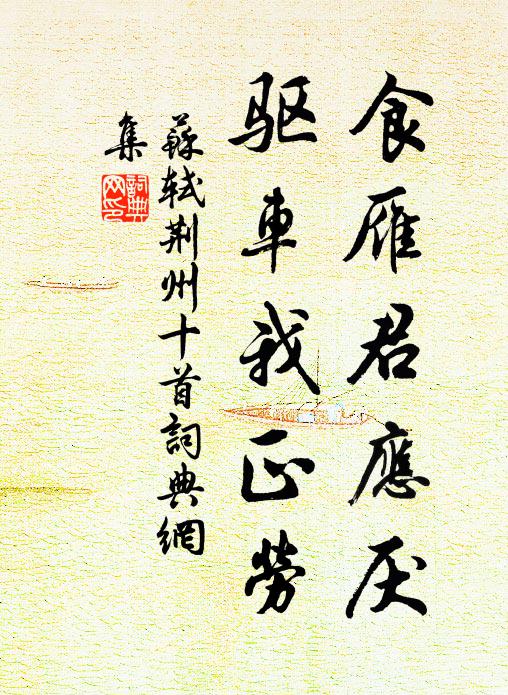 食雁君應厌
驱車我正勞
蘇轼荆州十首詞典網
集
詞典
网印